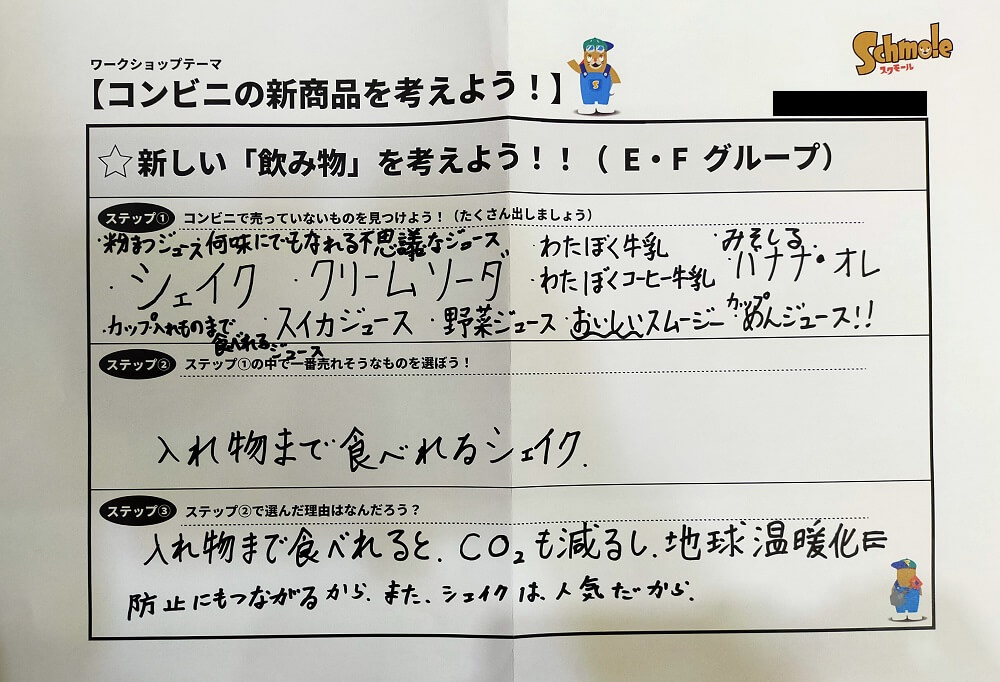 ワークショップテーマ
【コンビニの新商品を考えよう！】
Schmole
スクモール
☆新しい「飲み物」を考えよう！！（E・Fグループ）
ステップ① コンビニで売っていないものを見つけよう！（たくさん出しましょう）
・粉まつジュース何味にでもなれる不思議なジュース
・わたぼく牛乳
・みそしる
・シェイク
・クリームソーダ
・わたぼくコーヒー牛乳
・バナナ・オレ
・カップ入れものまで食べれるジュース
・スイカジュース
・野菜ジュース
・おいしいスムージー
・カップめんジュース!!
ステップ② ステップ①の中で一番売れそうなものを選ぼう！
入れ物まで食べれるシェイク.
ステップ③ ステップ②で選んだ理由はなんだろう？
入れ物まで食べれると、CO₂も減るし、地球温暖化
防止にもつながるから、また、シェイクは、人気だから、